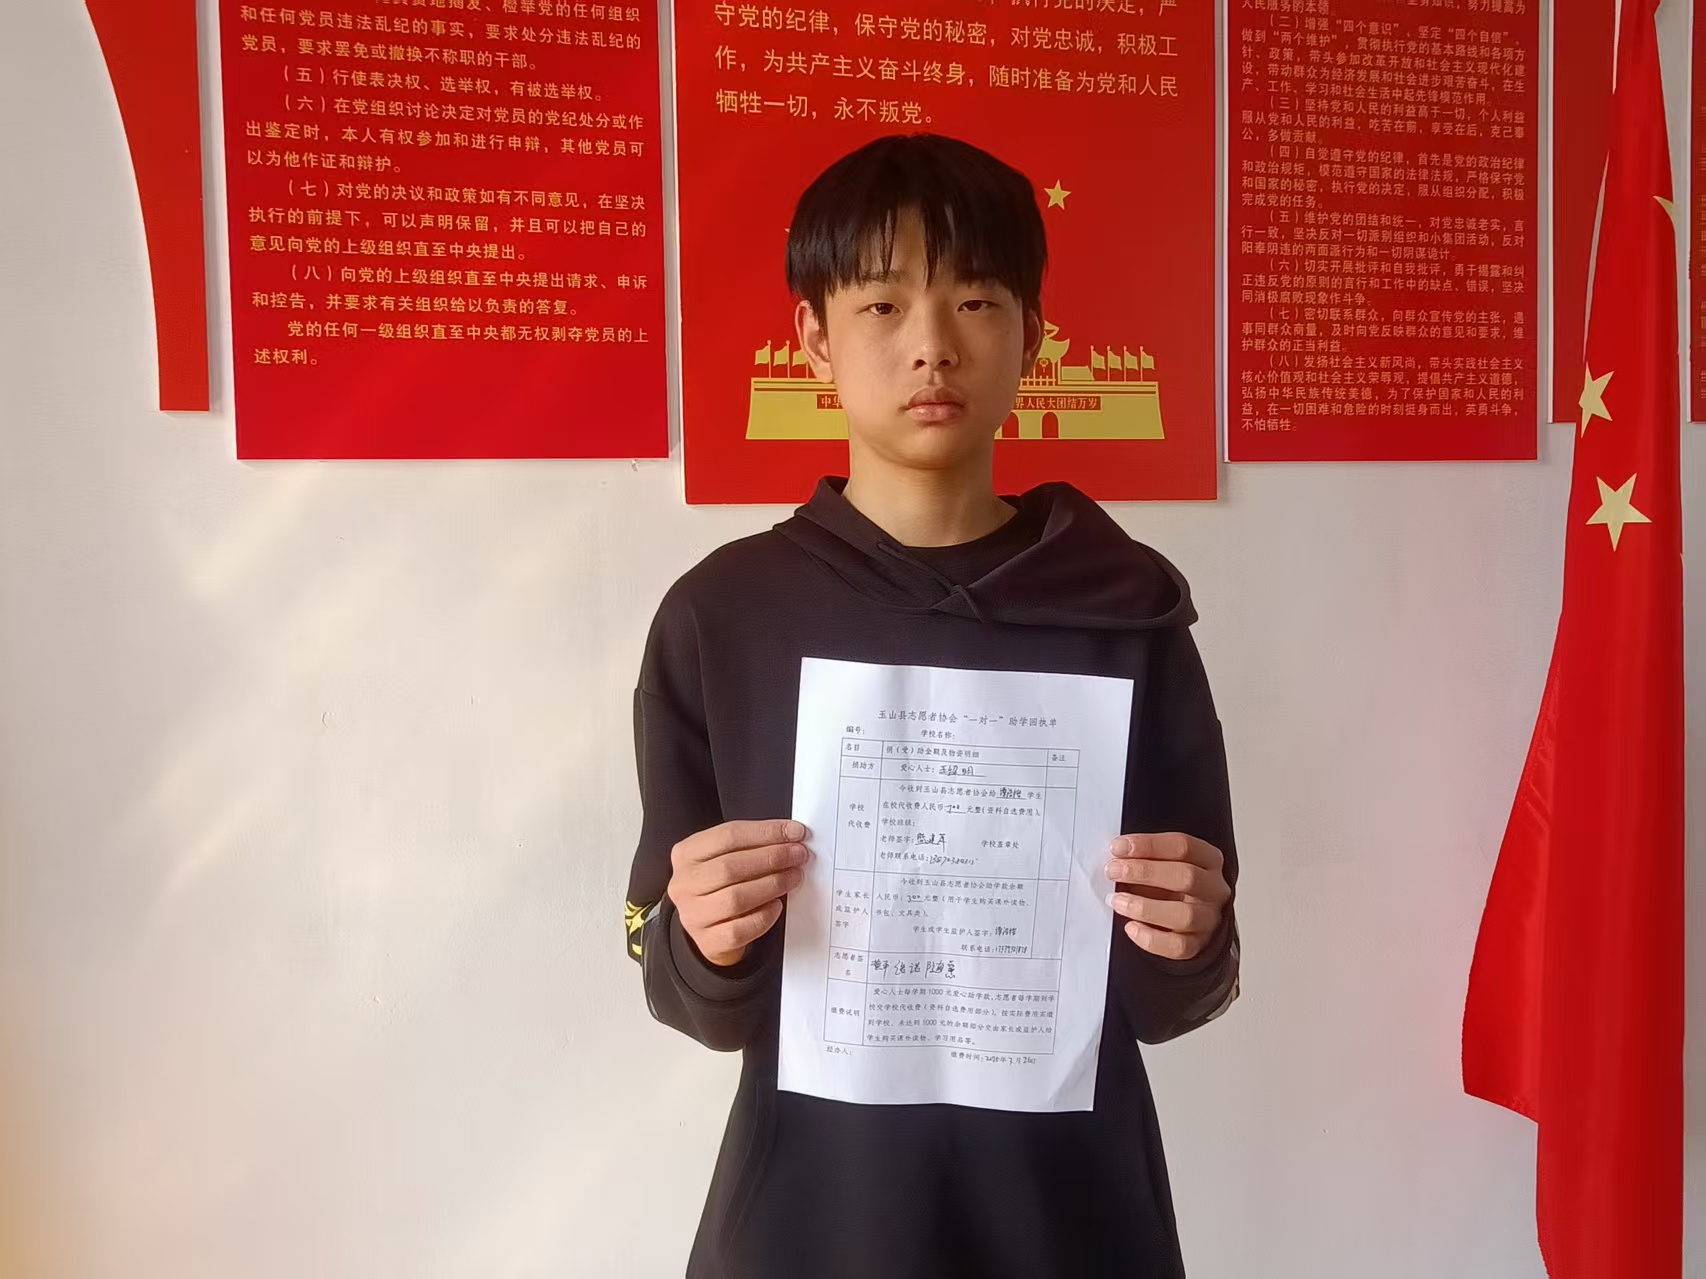 和任何党员违法乱纪的事实，要求处分违法乱纪的
党员，要求罢免或撤换不称职的干部。
（五）行使表决权、选举权，有被选举权。
（六）在党组织讨论决定对党员的党纪处分或作
出鉴定时，本人有权参加和进行申辩，其他党员可
以为他作证和辩护。
（七）对党的决议和政策如有不同意见，在坚决
执行的前提下，可以声明保留，并且可以把自己的
意见向党的上级组织直至中央提出。
（八）向党的上级组织直至中央提出请求、申诉
和控告，并要求有关组织给以负责的答复。
党的任何一级组织直至中央都无权剥夺党员的上
述权利。
执行党的决定，严
守党的纪律，保守党的秘密，对党忠诚，积极工
作，为共产主义奋斗终身，随时准备为党和人民
牺牲一切，永不叛党。
中华
界人民大团结万岁
人民服务的本领。
（二）增强“四个意识”、坚定“四个自信”、
做到“两个维护”，贯彻执行党的基本路线和各项方
针、政策，带头参加改革开放和社会主义现代化建
设，带动群众为经济发展和社会进步艰苦奋斗，在生
产、工作、学习和社会生活中起先锋模范作用。
（三）坚持党和人民的利益高于一切，个人利益
服从党和人民的利益，吃苦在前，享受在后，克己奉
公，多做贡献。
（四）自觉遵守党的纪律，首先是党的政治纪律
和政治规矩，模范遵守国家的法律法规，严格保守党
和国家的秘密，执行党的决定，服从组织分配，积极
完成党的任务。
（五）维护党的团结和统一，对党忠诚老实，言
行一致，坚决反对一切派别组织和小集团活动，反对
阳奉阴违的两面派行为和一切阴谋诡计。
（六）切实开展批评和自我批评，勇于揭露和纠
正违反党的原则的言行和工作中的缺点、错误，坚决
同消极腐败现象作斗争。
（七）密切联系群众，向群众宣传党的主张，遇
事同群众商量，及时向党反映群众的意见和要求，维
护群众的正当利益。
（八）发扬社会主义新风尚，带头实践社会主义
核心价值观和社会主义荣辱观，提倡共产主义道德，
弘扬中华民族传统美德，为了保护国家和人民的利
益，在一切困难和危险的时刻挺身而出，英勇斗争，
不怕牺牲。
玉山县志愿者协会“一对一”助学回执单
编号： 学校名称：
名目 捐（受）助金额及物资明细 备注
捐助方 爱心人士：
学校
代收费
今收到玉山县志愿者协会给 学生
在校代收费人民币 元整（资料自选费用）。
学校班级：
老师签字： 学校盖章处
老师联系电话：
学生家长
或监护人
签字
今收到玉山县志愿者协会助学款金额
人民币： 元整（用于学生购买课外读物、
书包、文具类）。
学生或学生监护人签字：
联系电话：
志愿者签
名
缴费说明
爱心人士每学期1000元爱心助学款，志愿者每学期到学
校交学校代收费（资料自选费用部分），按实际费用实缴
到学校，未达到1000元的余额部分交由家长或监护人给
学生购买课外读物、学习用品等。
经办人： 缴费时间： 年 月